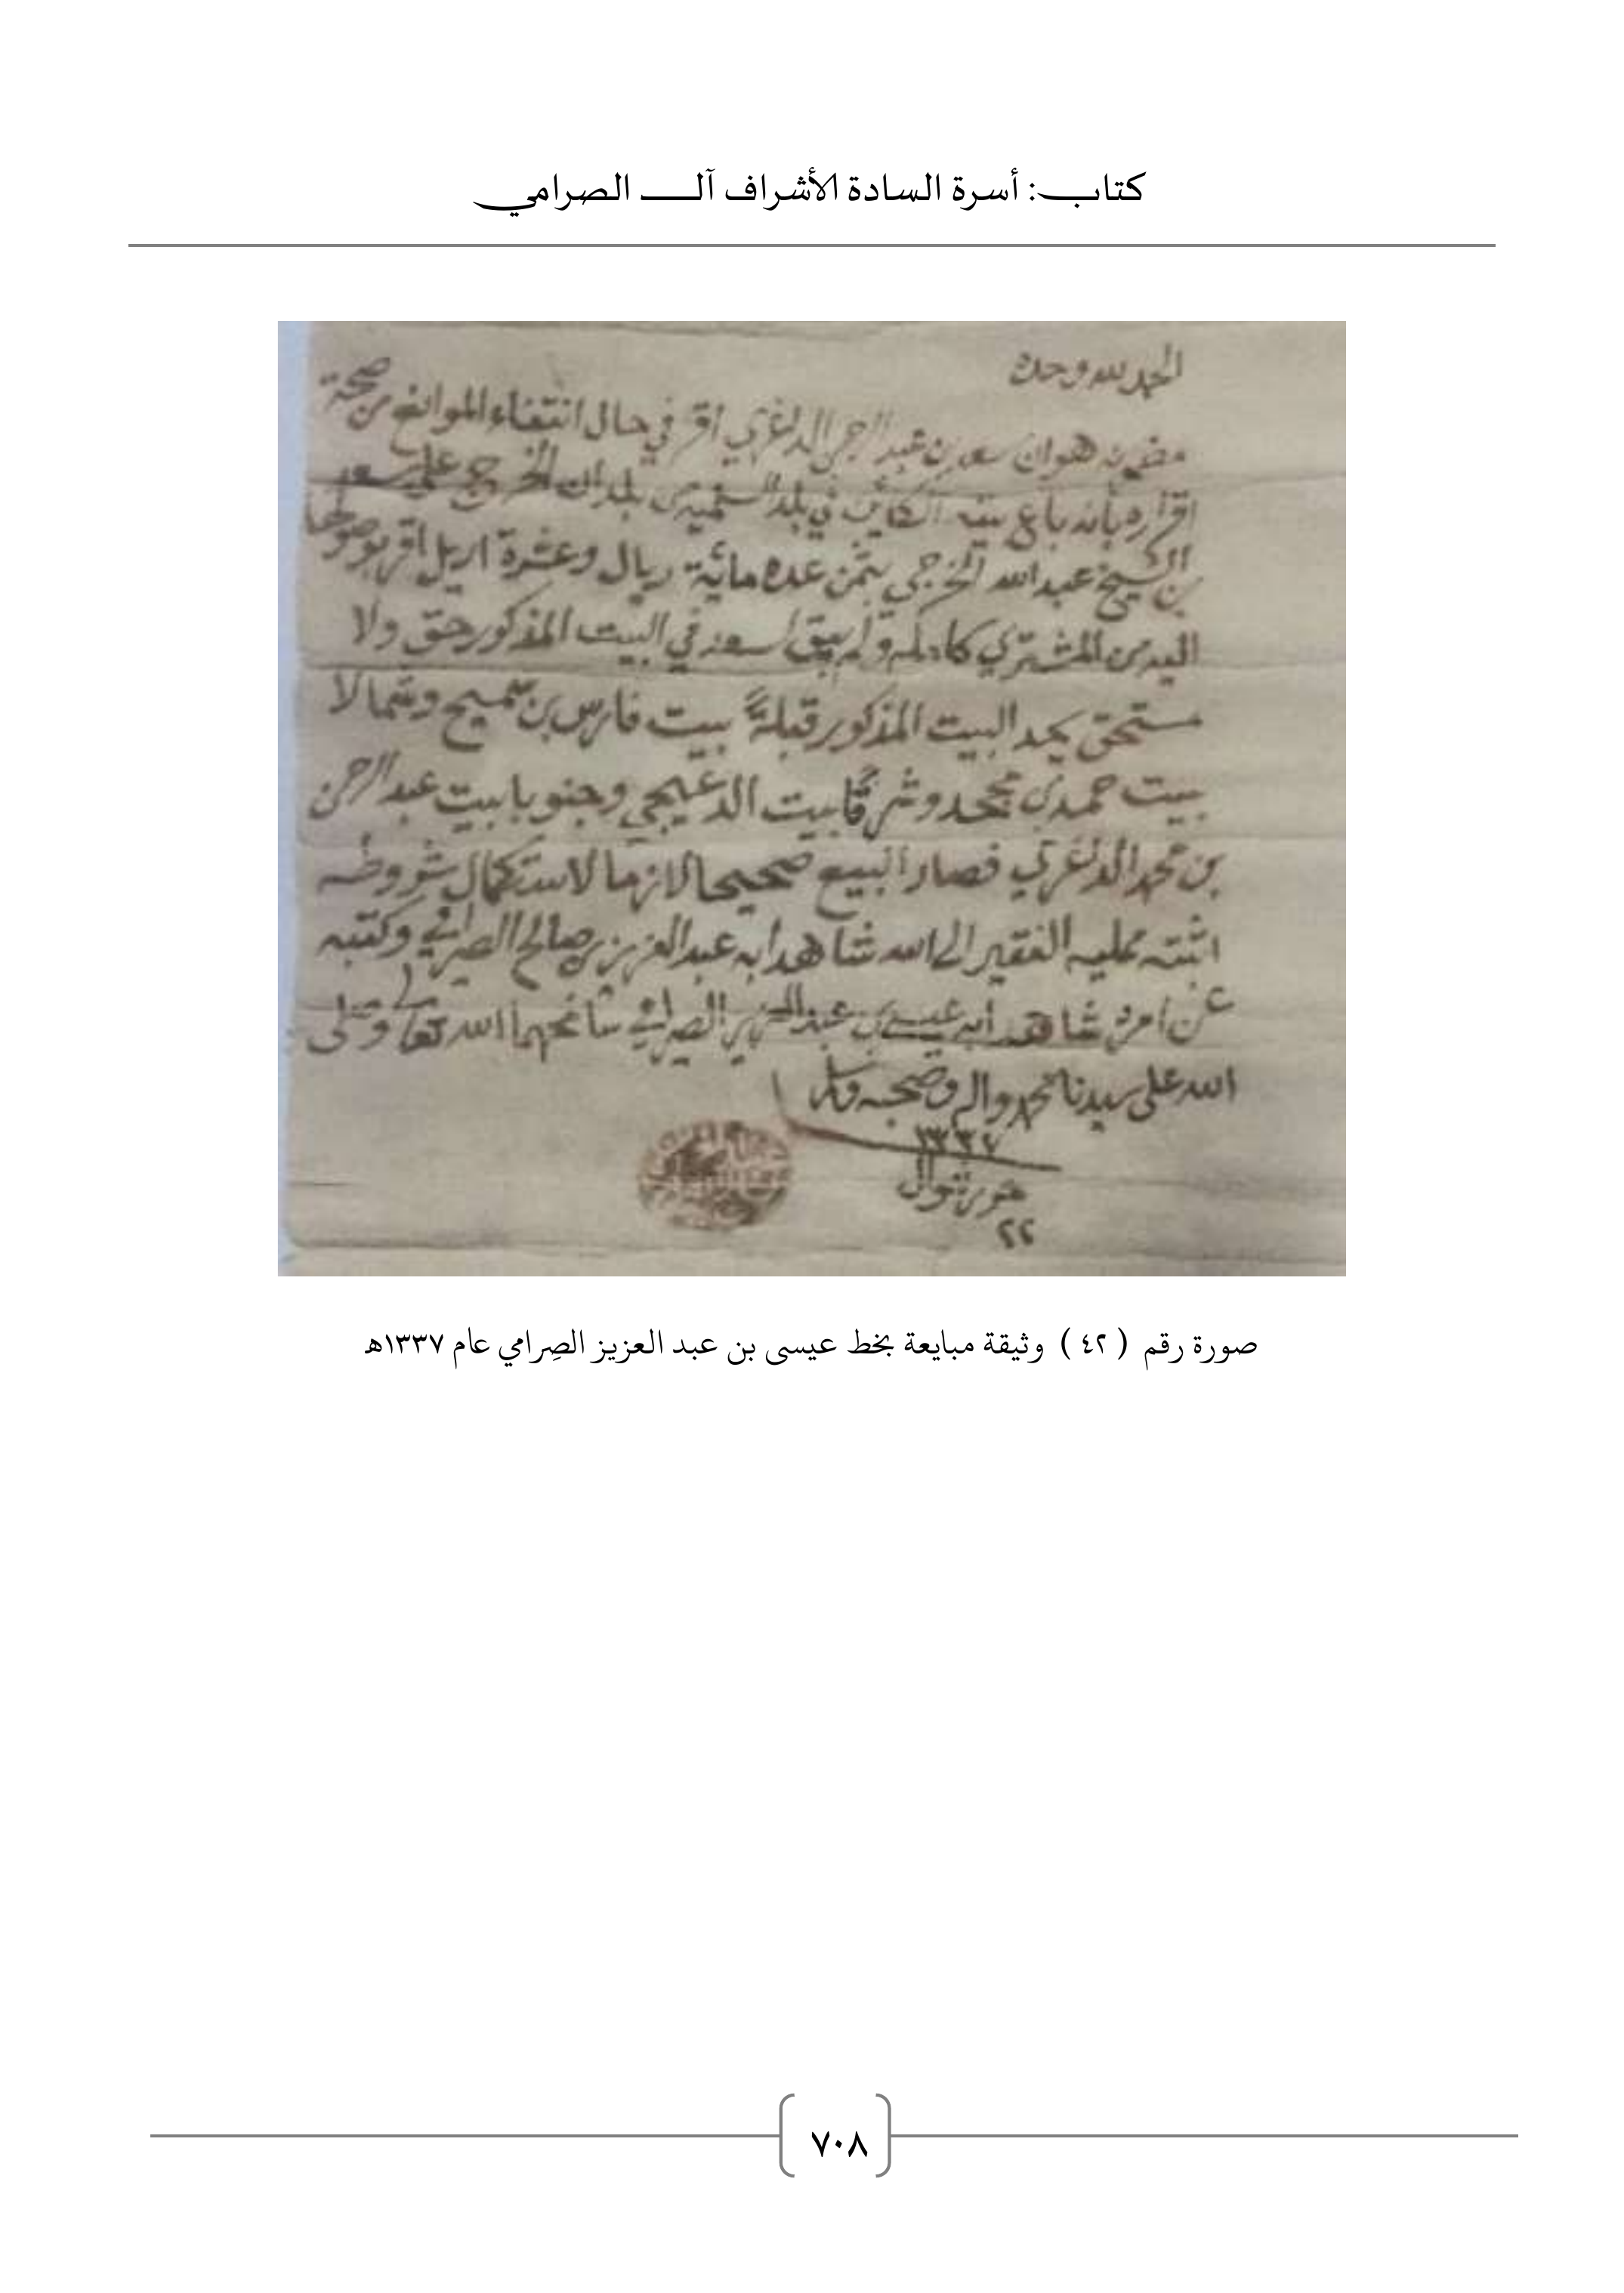 كتاب: أسرة السادة الأشراف آل الصرامي
الحمد لله وحده
مضمونه هو ان سعد بن عبدالرحمن الدلغري اقر في حال انتفاء الموانع من صحة
اقراره بأنه باع بيته الكائن في بلد بلدان الخرج على سعد
بن الشيخ عبدالله الخرجي بثمن عده مائية ريال وعشرة اريل اقر بوصولها
اليه من المشتري كاملة ولم يبق لسعد في البيت المذكور حق ولا
مستحق يحد البيت المذكور قبلةً بيت فارس بن سميح وشمالا
بيت حمد بن محمد وشرقًا بيت الدعيجي وجنوبا بيت عبدالرحمن
بن محمد الدلغري فصار البيع صحيحا لازما لاستكمال شروطه
اثبته ممليه الفقير الى الله شاهدا به عبدالعزيز بن صالح الصرامي وكتبه
عن امره شاهد ابه عيسى بن عبدالعزيز الصرامي سامحهما الله تعالى وصلى
الله على سيدنا محمد واله وصحبه وسلم
١٣٣٧
حرر شوال
٢٢
صورة رقم ( ٤٢ ) وثيقة مبايعة بخط عيسى بن عبد العزيز الصِرامي عام ١٣٣٧هـ
٧٠٨